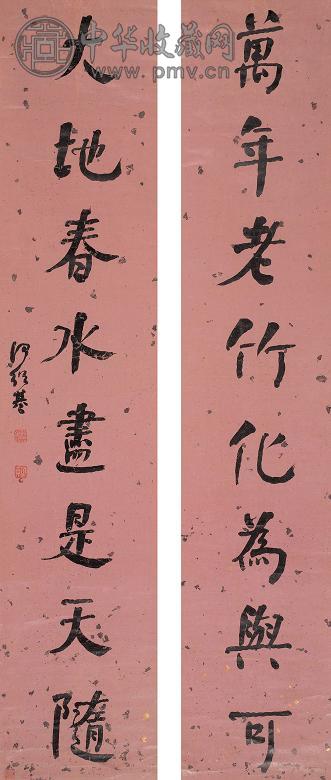 萬年老竹化為與可
大地春水盡是天隨
何紹基
中华收藏网
www.pmv.cn